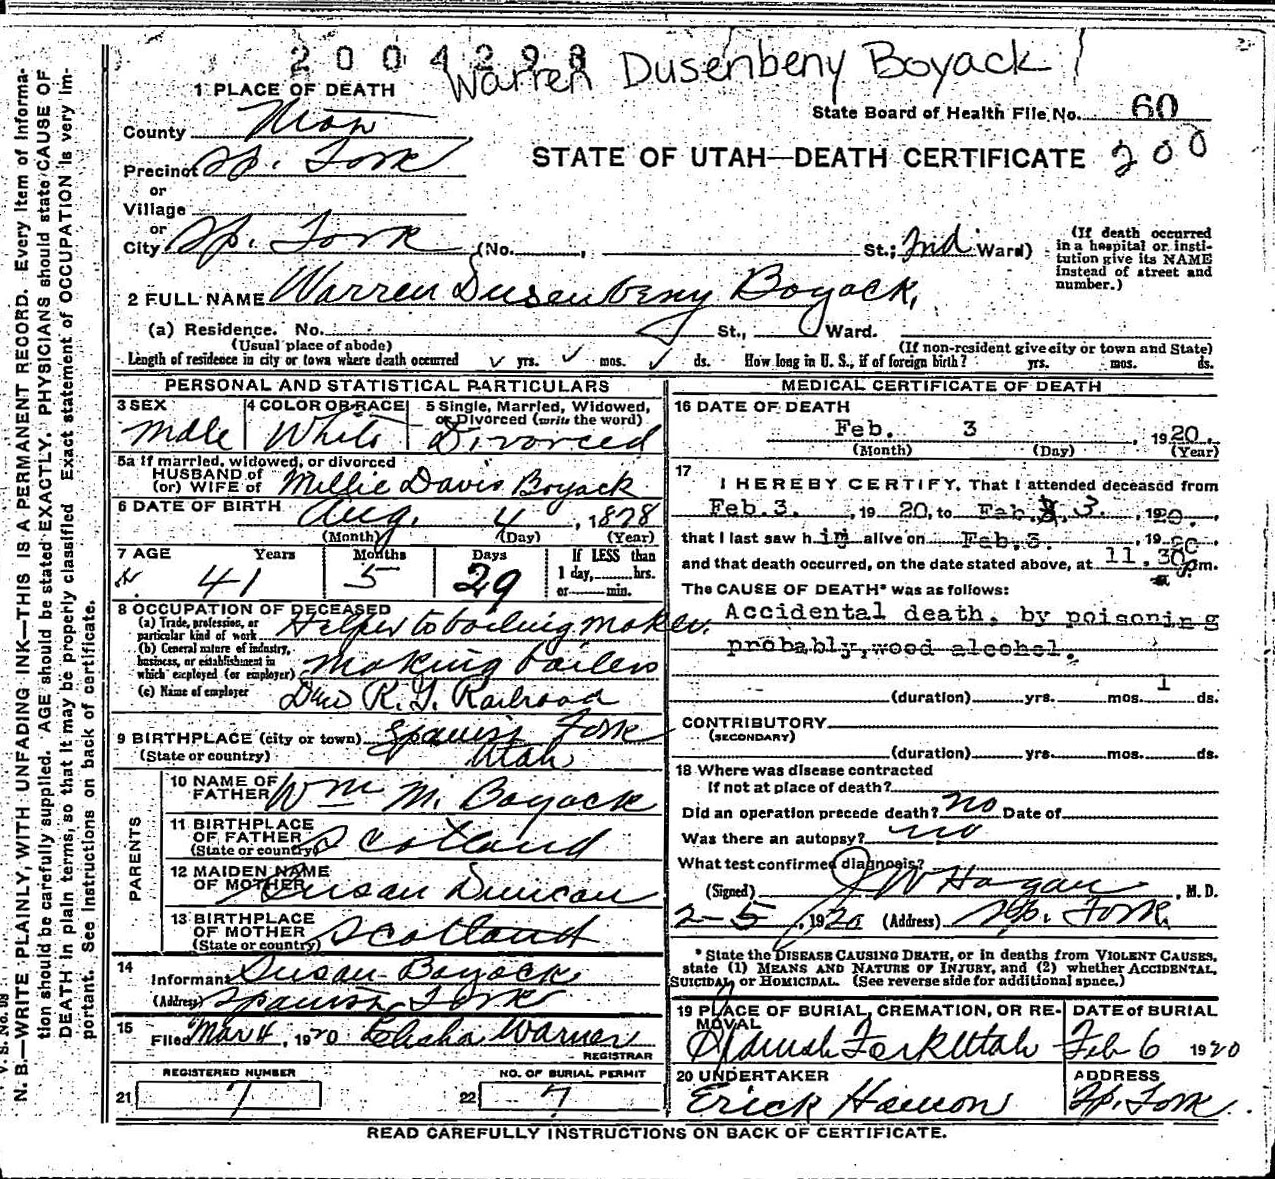 2004298
Warren Dusenbeny Boyack
1 PLACE OF DEATH
State Board of Health File No. 60
County Utah
STATE OF UTAH—DEATH CERTIFICATE 200
Precinct Sp. Fork
or
Village
or
City Sp. Fork (No. , St.; 2nd Ward)
(If death occurred in a hospital or insti-
tution give its NAME instead of street and number.)
2 FULL NAME Warren Dusenbeny Boyack,
(a) Residence. No. St., Ward.
(Usual place of abode) (If non-resident give city or town and State)
Length of residence in city or town where death occurred yrs. mos. ds. How long in U. S., if of foreign birth? yrs. mos. ds.
PERSONAL AND STATISTICAL PARTICULARS
3 SEX 4 COLOR OR RACE 5 Single, Married, Widowed,
or Divorced (write the word)
Male White Divorced
5a If married, widowed, or divorced
HUSBAND of
(or) WIFE of Millie Davis Boyack
6 DATE OF BIRTH Aug. 4, 1878
(Month) (Day) (Year)
7 AGE Years Months Days If LESS than
1 day, hrs.
or min.
41 5 29
8 OCCUPATION OF DECEASED
(a) Trade, profession, or
particular kind of work Helper to boiling maker.
(b) General nature of industry,
business, or establishment in
which employed (or employer) making boilers
(c) Name of employer R. G. Railroad
9 BIRTHPLACE (city or town) Spanish Fork
(State or country) Utah
PARENTS
10 NAME OF
FATHER Wm M. Boyack
11 BIRTHPLACE
OF FATHER
(State or country) Scotland
12 MAIDEN NAME
OF MOTHER Susan Duncan
13 BIRTHPLACE
OF MOTHER
(State or country) Scotland
14 Informant Susan Boyack
(Address) Spanish Fork
15 Filed Mar 4, 1920 Elisha Warner
REGISTRAR
REGISTERED NUMBER NO. OF BURIAL PERMIT
21 7 22 7
MEDICAL CERTIFICATE OF DEATH
16 DATE OF DEATH
Feb. 3, 1920.
(Month) (Day) (Year)
17 I HEREBY CERTIFY, That I attended deceased from
Feb. 3., 1920, to Feb. 3., 1920.
that I last saw him alive on Feb. 3., 1920
and that death occurred, on the date stated above, at 11.30 p.m.
The CAUSE OF DEATH* was as follows:
Accidental death, by poisoning
probably, wood alcohol.
(duration) yrs. mos. 1 ds.
CONTRIBUTORY
(SECONDARY)
(duration) yrs. mos. ds.
18 Where was disease contracted
If not at place of death?
Did an operation precede death? no Date of
Was there an autopsy? no
What test confirmed diagnosis?
(Signed) J W Hagan, M. D.
2-5, 1920 (Address) Sp. Fork
* State the DISEASE CAUSING DEATH, or in deaths from VIOLENT CAUSES,
state (1) MEANS AND NATURE OF INJURY, and (2) whether ACCIDENTAL,
SUICIDAL, or HOMICIDAL. (See reverse side for additional space.)
19 PLACE OF BURIAL, CREMATION, OR RE- DATE of BURIAL
MOVAL
Spanish Fork Utah Feb 6 1920
20 UNDERTAKER ADDRESS
Erick Sp. Fork.
READ CAREFULLY INSTRUCTIONS ON BACK OF CERTIFICATE.
N. B.—WRITE PLAINLY, WITH UNFADING INK—THIS IS A PERMANENT RECORD. Every item of informa-
tion should be carefully supplied. AGE should be stated EXACTLY. PHYSICIANS should state CAUSE OF
DEATH in plain terms, so that it may be properly classified Exact statement of OCCUPATION is very im-
portant. See instructions on back of certificate.